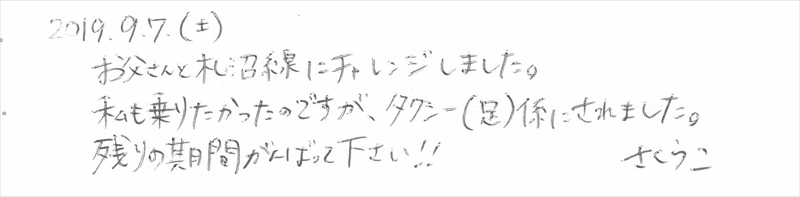 2019.9.7.(土)
お父さんと札沼線にチャレンジしました。
私も乗りたかったのですが、タクシー(足)係にされました。
残りの期間がんばって下さい!!
さくらこ